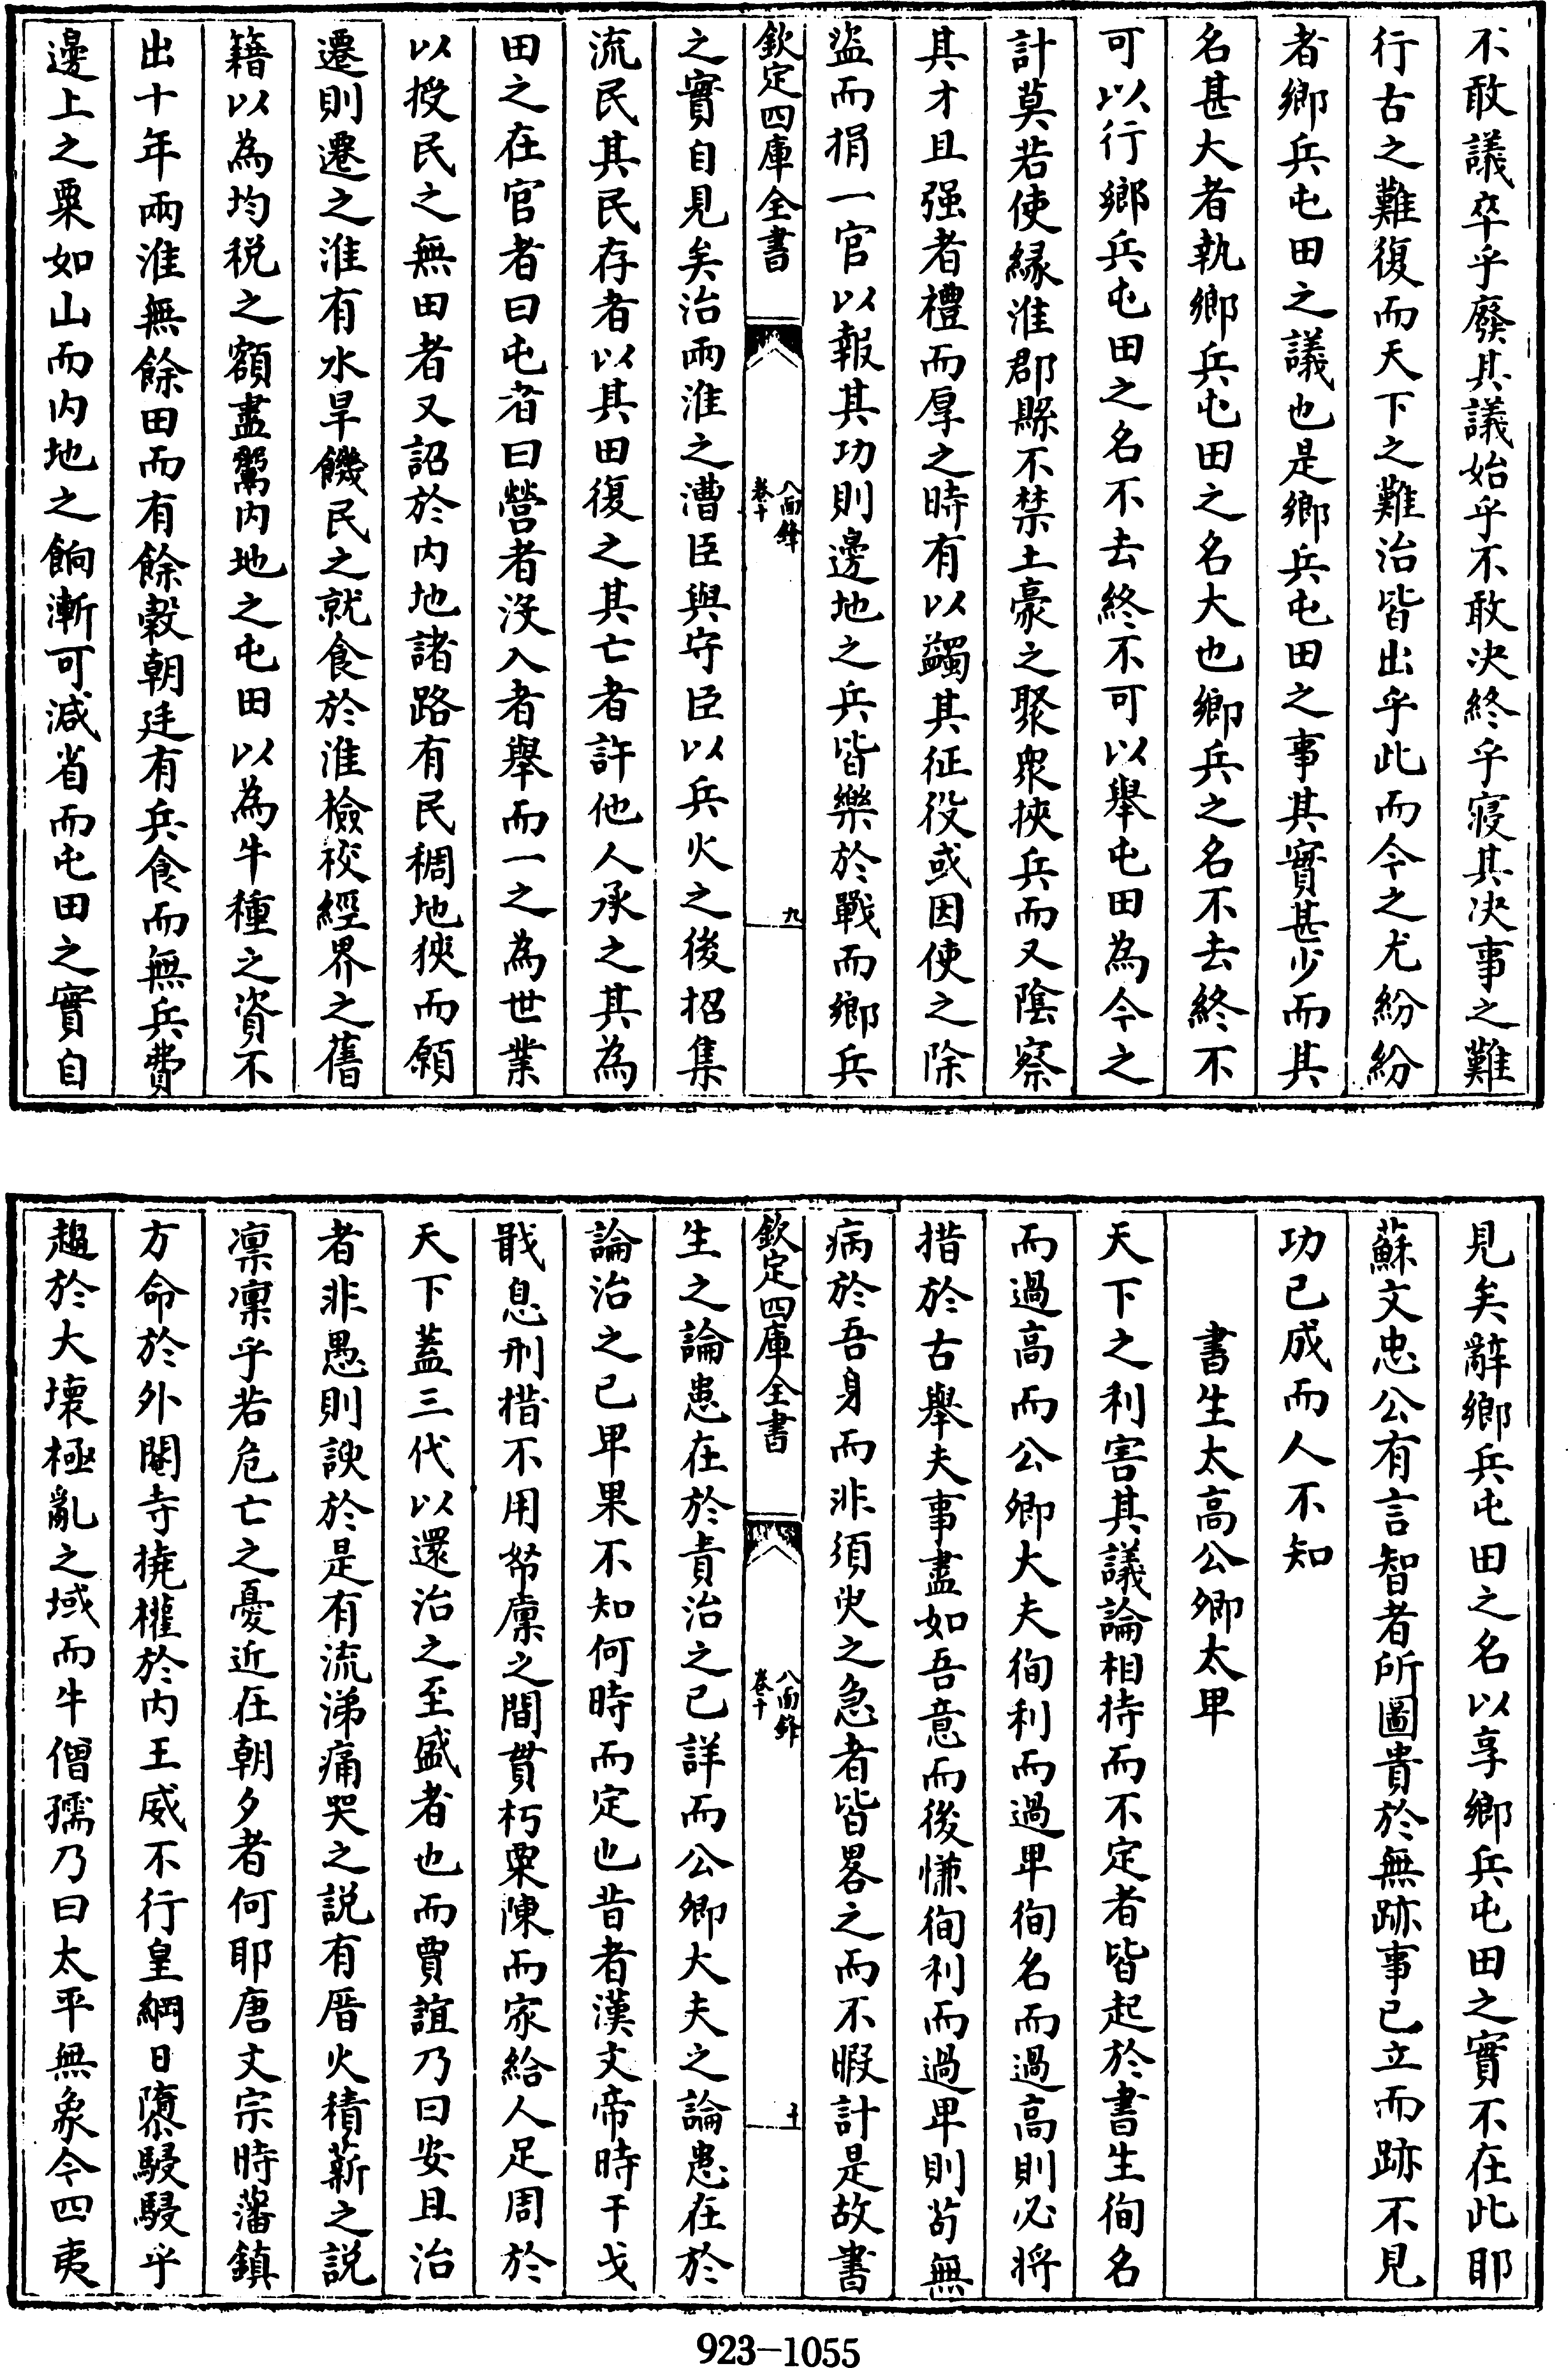 不敢議卒乎廢其議始乎不敢決終乎寢其決事之難
行古之難復而天下之難治皆出乎此而今之尤紛紛
者鄉兵屯田之議也是鄉兵屯田之事其實甚少而其
名甚大者執鄉兵屯田之名大也鄉兵之名不去終不
可以行鄉兵屯田之名不去終不可以舉屯田為今之
計莫若使縁淮郡縣不禁土豪之聚衆挾兵而又陰察
其才且强者禮而厚之時有以蠲其征役或因使之除
盜而捐一官以報其功則邊地之兵皆樂於戰而鄉兵
欽定四庫全書
八面鋒
卷十
九
之實自見矣治兩淮之漕臣與守臣以兵火之後招集
流民其民存者以其田復之其亡者許他人承之其為
田之在官者曰屯者曰營者沒入者舉而一之為世業
以授民之無田者又詔於内地諸路有民稠地狹而願
遷則遷之淮有水旱饑民之就食於淮檢校經界之舊
籍以為均税之額盡鬻内地之屯田以為牛種之資不
出十年兩淮無餘田而有餘穀朝廷有兵食而無兵費
邊上之粟如山而内地之餉漸可減省而屯田之實自
見矣辭鄉兵屯田之名以享鄉兵屯田之實不在此耶
蘇文忠公有言智者所圖貴於無跡事已立而跡不見
功已成而人不知
書生太高公卿太卑
天下之利害其議論相持而不定者皆起於書生徇名
而過高而公卿大夫徇利而過卑徇名而過高則必將
措於古舉夫事盡如吾意而後慊徇利而過卑則苟無
病於吾身而非須臾之急者皆畧之而不暇計是故書
欽定四庫全書
八面鋒
卷十
十
生之論患在於責治之已詳而公卿大夫之論患在於
論治之已卑果不知何時而定也昔者漢文帝時干戈
戢息刑措不用帑廪之間貫朽粟陳而家給人足周於
天下蓋三代以還治之至盛者也而賈誼乃曰安且治
者非愚則諛於是有流涕痛哭之説有厝火積薪之説
凛凛乎若危亡之憂近在朝夕者何耶唐文宗時藩鎮
方命於外閹寺撓權於内王威不行皇綱日隳駸駸乎
趨於大壞極亂之域而牛僧孺乃曰太平無象今四夷
923-1055